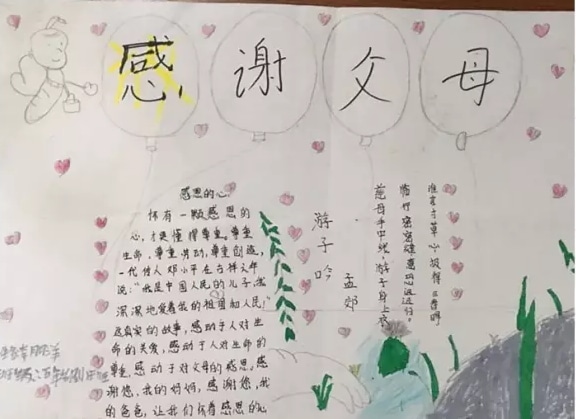 感谢父母
感恩的心
怀有一颗感恩的
心，才更懂得尊重。尊重
生命，尊重劳动，尊重创造，
一代伟人邓小平在古稀之年
说：“我是中国人民的儿子，我
深深地爱着我的祖国和人民！”
这真实的故事，感动于人对生
命的关爱，感动于人对生命的
尊重，感动于对父母的感恩，感
谢您，我的妈妈，感谢您，我
的爸爸，让我们怀着感恩的心
游子吟
孟郊
慈母手中线，游子身上衣
临行密密缝意恐迟迟归。
谁言寸草心报得三春晖